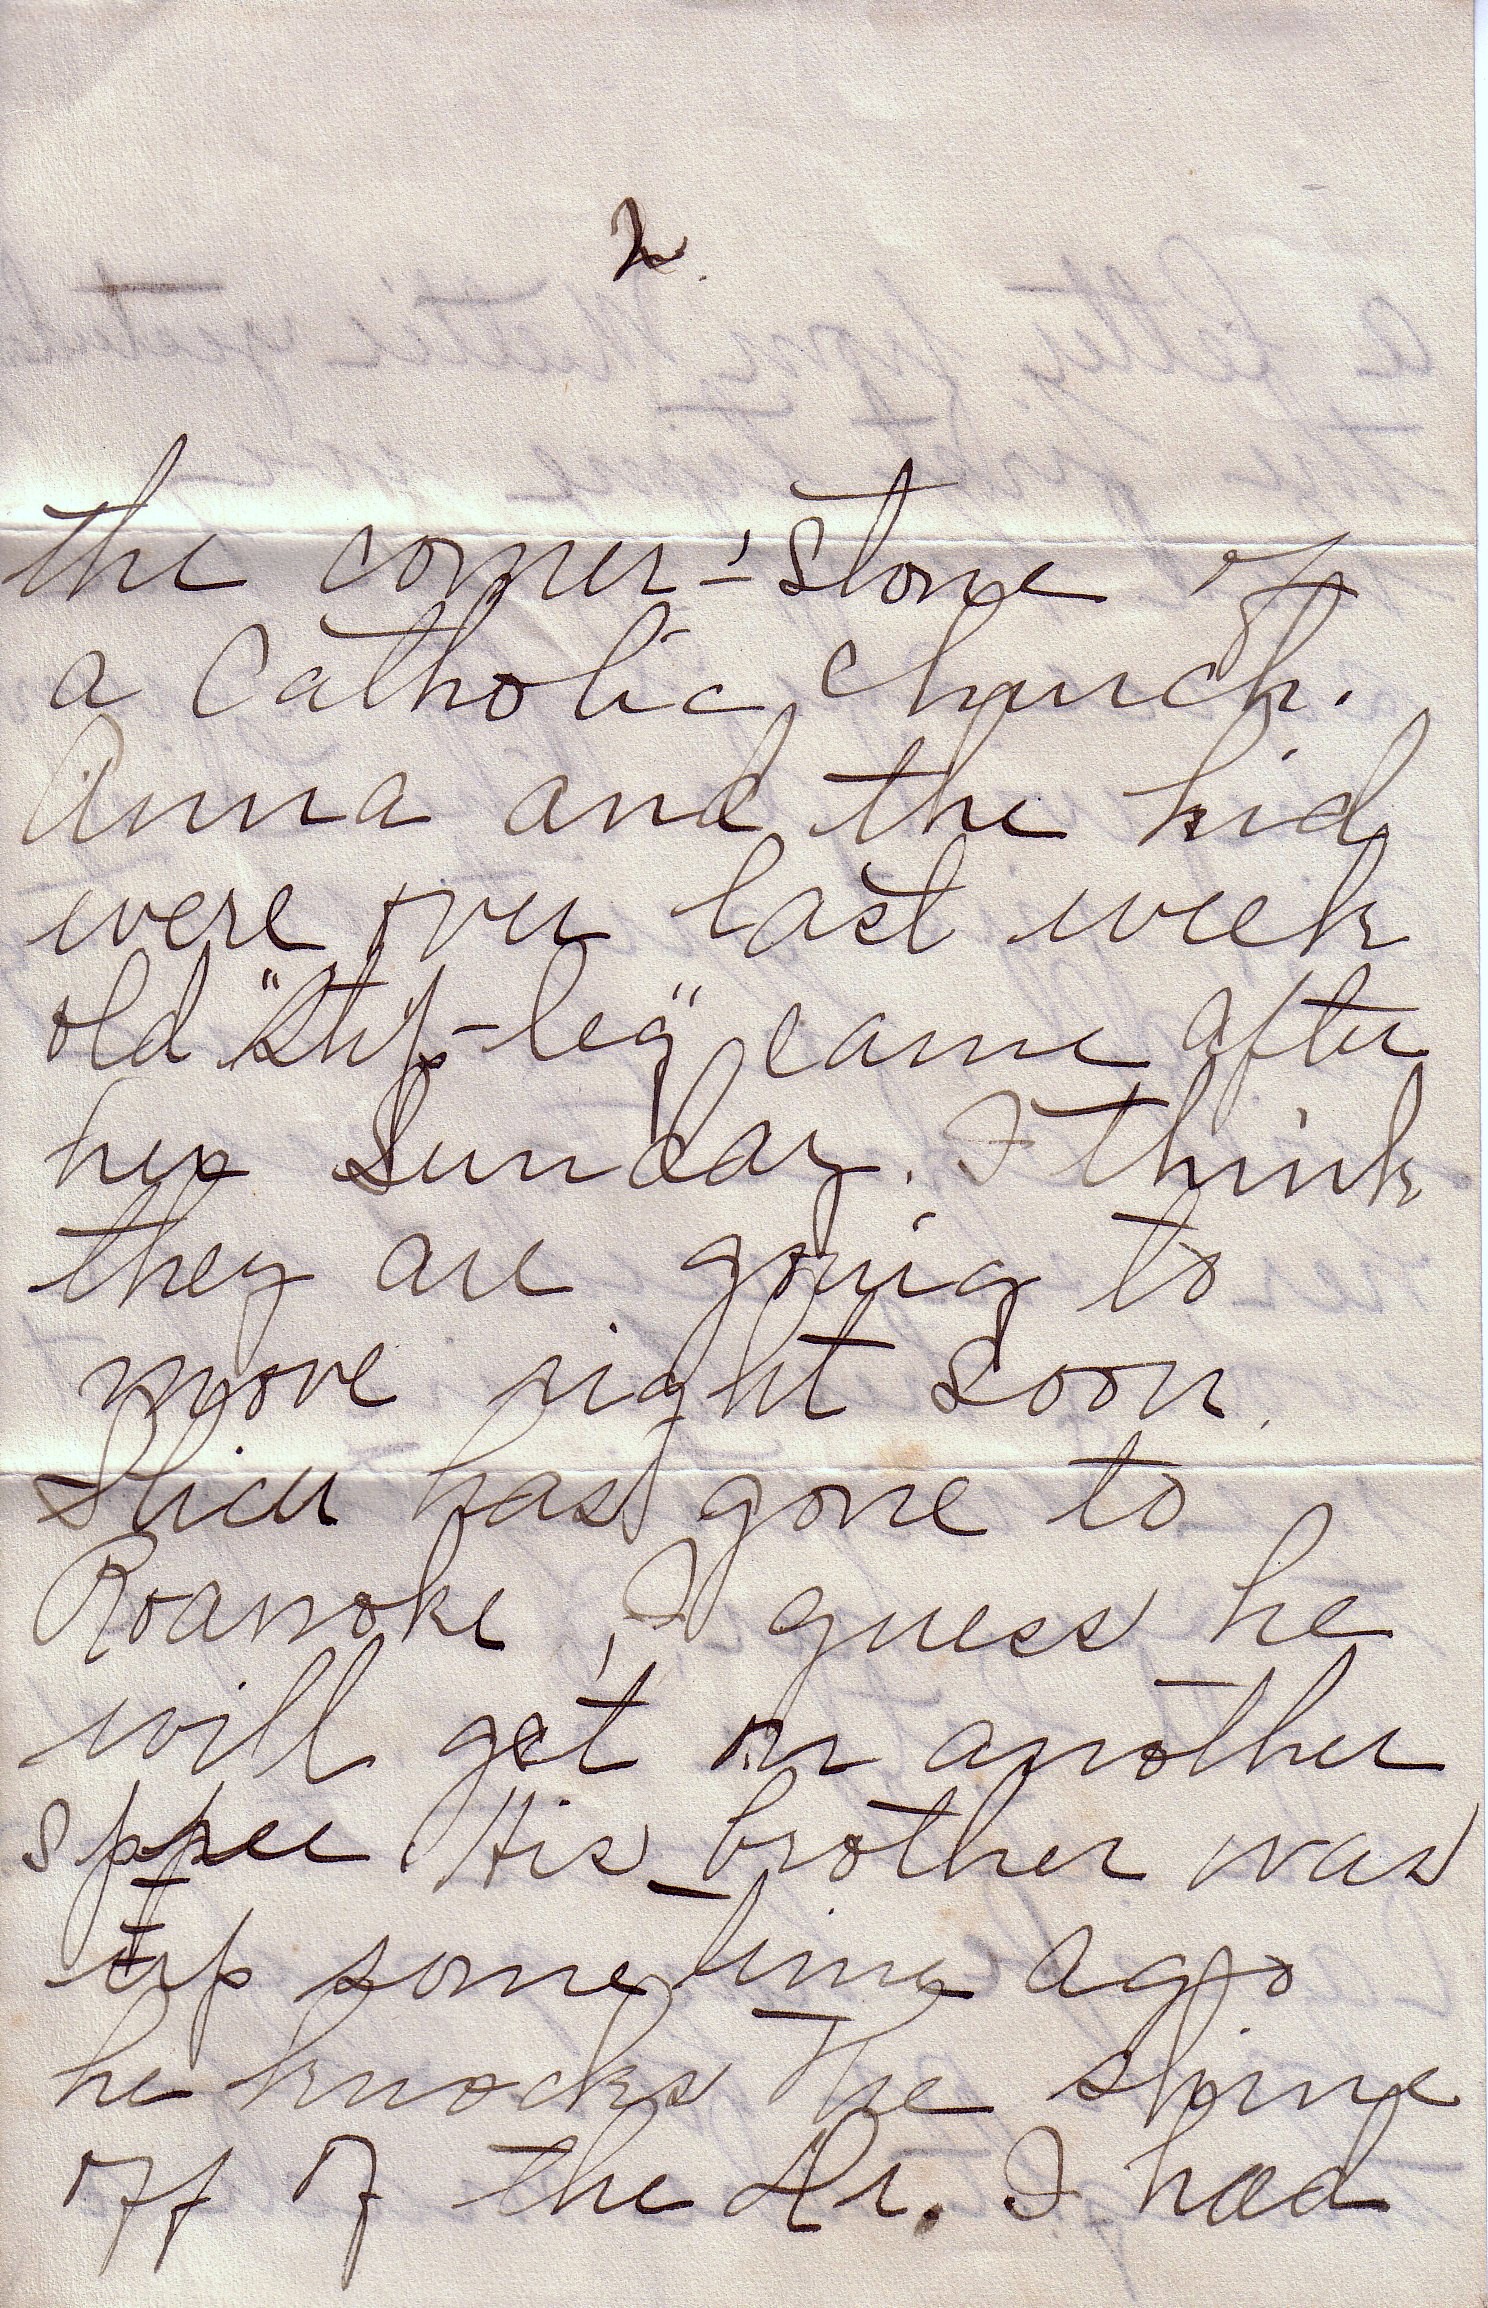 2.
the corner-stone of
a Catholic church.
Anna and the kid
were over last week
old "Stif-leg" came after
her Sunday. I think
they are going to
move right soon.
has gone to
Roanoke, I guess he
will get on another
spree. His brother was
up some time ago
he knocks the shine
off of the Dr. I had